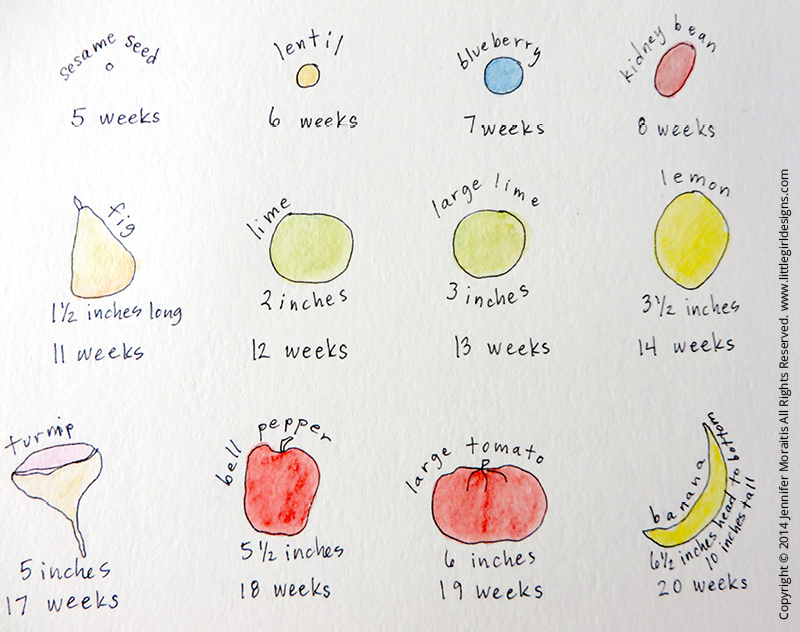 sesame seed
5 weeks
lentil
6 weeks
blueberry
7 weeks
kidney bean
8 weeks
fig
1½ inches long
11 weeks
lime
2 inches
12 weeks
large lime
3 inches
13 weeks
lemon
3½ inches
14 weeks
turnip
5 inches
17 weeks
bell pepper
5½ inches
18 weeks
large tomato
6 inches
19 weeks
banana
6½ inches head to bottom
10 inches tall
20 weeks
Copyright © 2014 Jennifer Moraitis All Rights Reserved. www.littlegirldesigns.com